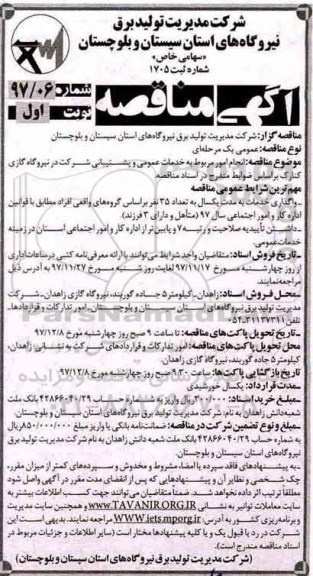 شرکت مدیریت تولید برق
نیروگاه‌های استان سیستان و بلوچستان
«سهامی خاص»
شماره ثبت ۱۷۰۵
آگهی مناقصه
شماره ۹۷/۰۶
نوبت اول
مناقصه گزار: شرکت مدیریت تولید برق نیروگاه‌های استان سیستان و بلوچستان
نوع مناقصه: عمومی یک مرحله‌ای
موضوع مناقصه: انجام امور مربوط به خدمات عمومی و پشتیبانی شرکت در نیروگاه گازی
کنارک براساس ضوابط مندرج در اسناد مناقصه.
مهم‌ترین شرایط عمومی مناقصه
ـ واگذاری خدمات به مدت یکسال به تعداد ۳۵ نفر براساس گروه‌های واقعی افراد مطابق با قوانین
اداره کار و امور اجتماعی سال ۹۷ (متأهل و دارای ۳ فرزند).
ـ داشتن تأییدیه صلاحیت و رتبه ۷ و پایین‌تر از اداره کار و امور اجتماعی استان در زمینه
خدمات عمومی.
ـ تاریخ فروش اسناد: متقاضیان واجد شرایط می‌توانند با ارائه معرفی‌نامه کتبی در ساعات اداری
از روز چهارشنبه مورخ ۹۷/۱۱/۱۷ لغایت روز شنبه مورخ ۹۷/۱۱/۲۷ به آدرس ذیل
مراجعه نمایند.
ـ محل فروش اسناد: زاهدان ـ کیلومتر ۵ جاده گوربند، نیروگاه گازی زاهدان ـ شرکت
مدیریت تولید برق نیروگاه‌های استان سیستان و بلوچستان ـ امور تدارکات و قراردادها ـ
تلفن:
ـ تاریخ تحویل پاکت‌های مناقصه: تا ساعت ۹ صبح روز چهارشنبه مورخ ۹۷/۱۲/۸
محل تحویل پاکت‌های مناقصه: امور تدارکات و قراردادهای شرکت به نشانی: زاهدان،
کیلومتر ۵ جاده گوربند، نیروگاه گازی زاهدان.
تاریخ بازگشایی پاکت‌ها: ساعت ۹:۳۰ صبح روز چهارشنبه مورخ ۹۷/۱۲/۸
ـ مدت قرارداد: یکسال خورشیدی
ـ مبلغ خرید اسناد: ۳۰۰/۰۰۰ ریال واریز به شماره حساب ۴۲۸۶۶۰۴۰/۲۹ بانک ملت
شعبه دانش زاهدان به نام: شرکت مدیریت تولید برق نیروگاه‌های استان سیستان و بلوچستان.
ـ مبلغ و نوع تضمین شرکت در مناقصه: ضمانت‌نامه بانکی یا واریز مبلغ ۸۵۰/۰۰۰/۰۰۰ ریال
به شماره حساب ۴۲۸۶۶۰۴۰/۲۹ بانک ملت شعبه دانش زاهدان به نام شرکت مدیریت تولید برق
نیروگاه‌های استان سیستان و بلوچستان.
ـ به پیشنهادهای فاقد سپرده یا امضاء، مشروط و مخدوش و سپرده‌های کمتر از میزان مقرر،
چک شخصی و نظایر آن و پیشنهادهایی که پس از انقضای مدت مقرر در آگهی واصل شود
مطلقاً ترتیب اثر داده نخواهد شد. ضمناً متقاضیان می‌توانند جهت کسب اطلاعات بیشتر به
سایت معاملات توانیر به نشانی WWW.TAVANIR.ORG.IR و همچنین سایت مدیریت
و برنامه‌ریزی کشور به آدرس: WWW.iets.mporg.ir مراجعه نمایند. بدیهی است این
شرکت در رد یا قبول یک و یا کلیه پیشنهادها مختار است (سایر اطلاعات و جزئیات مربوط در
اسناد مناقصه مندرج است).
(شرکت مدیریت تولید برق نیروگاه‌های استان سیستان و بلوچستان)